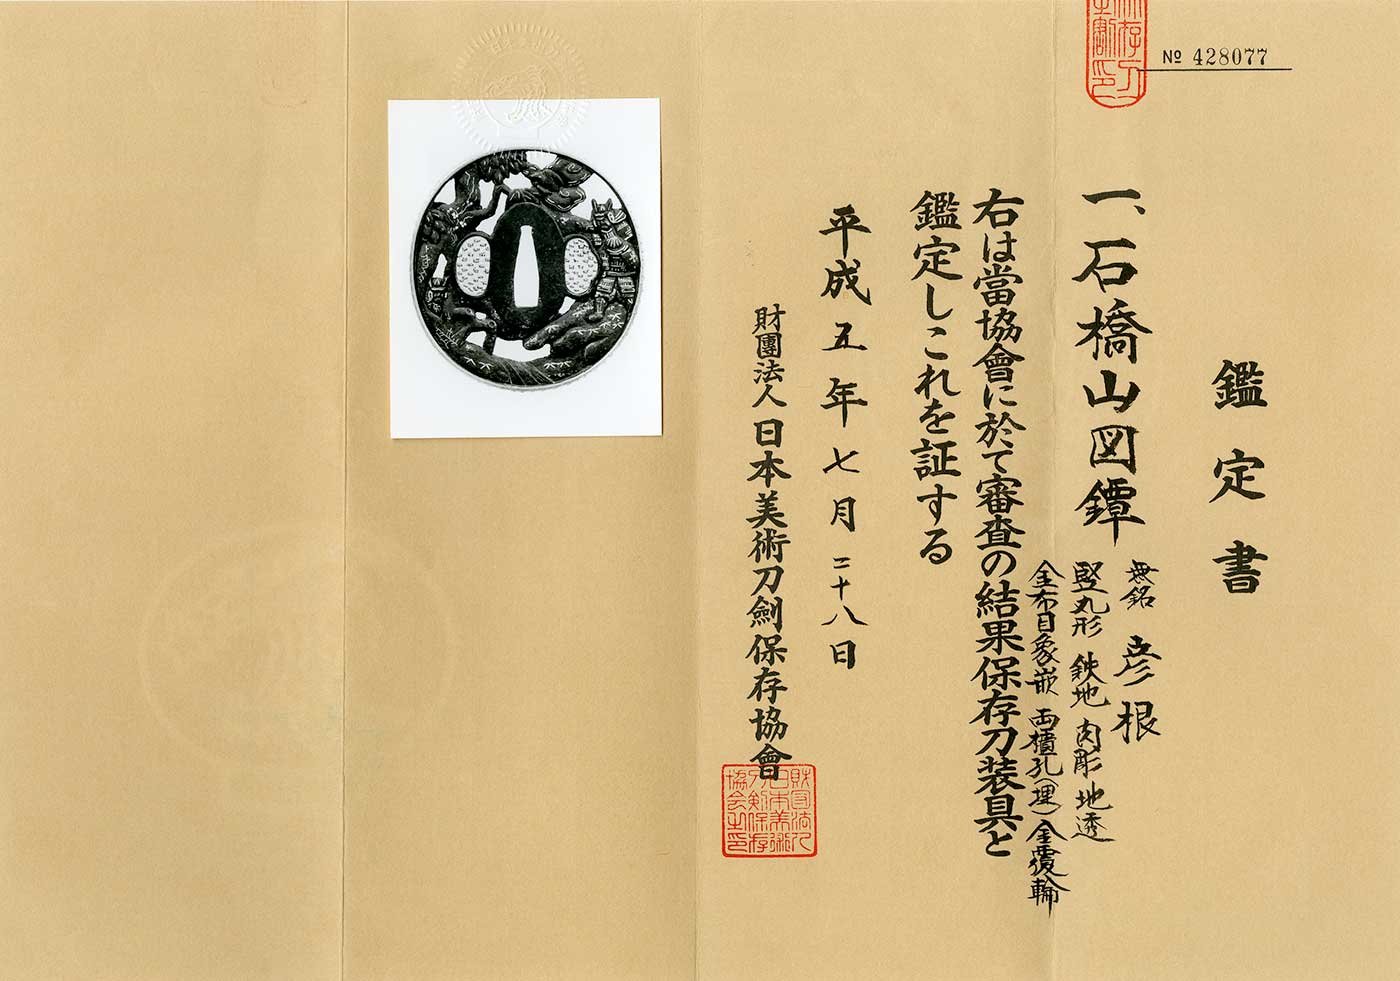 № 428077
鑑定書
一、石橋山図鐔
無銘 彦根
竪丸形 鉄地 肉彫地透
金布目象嵌 両櫃孔(埋) 金覆輪
右は當協會に於て審査の結果保存刀装具と
鑑定しこれを証する
平成五年七月二十八日
財團法人日本美術刀劍保存協會
財団法人
日本美術
刀剣保存
協会之印